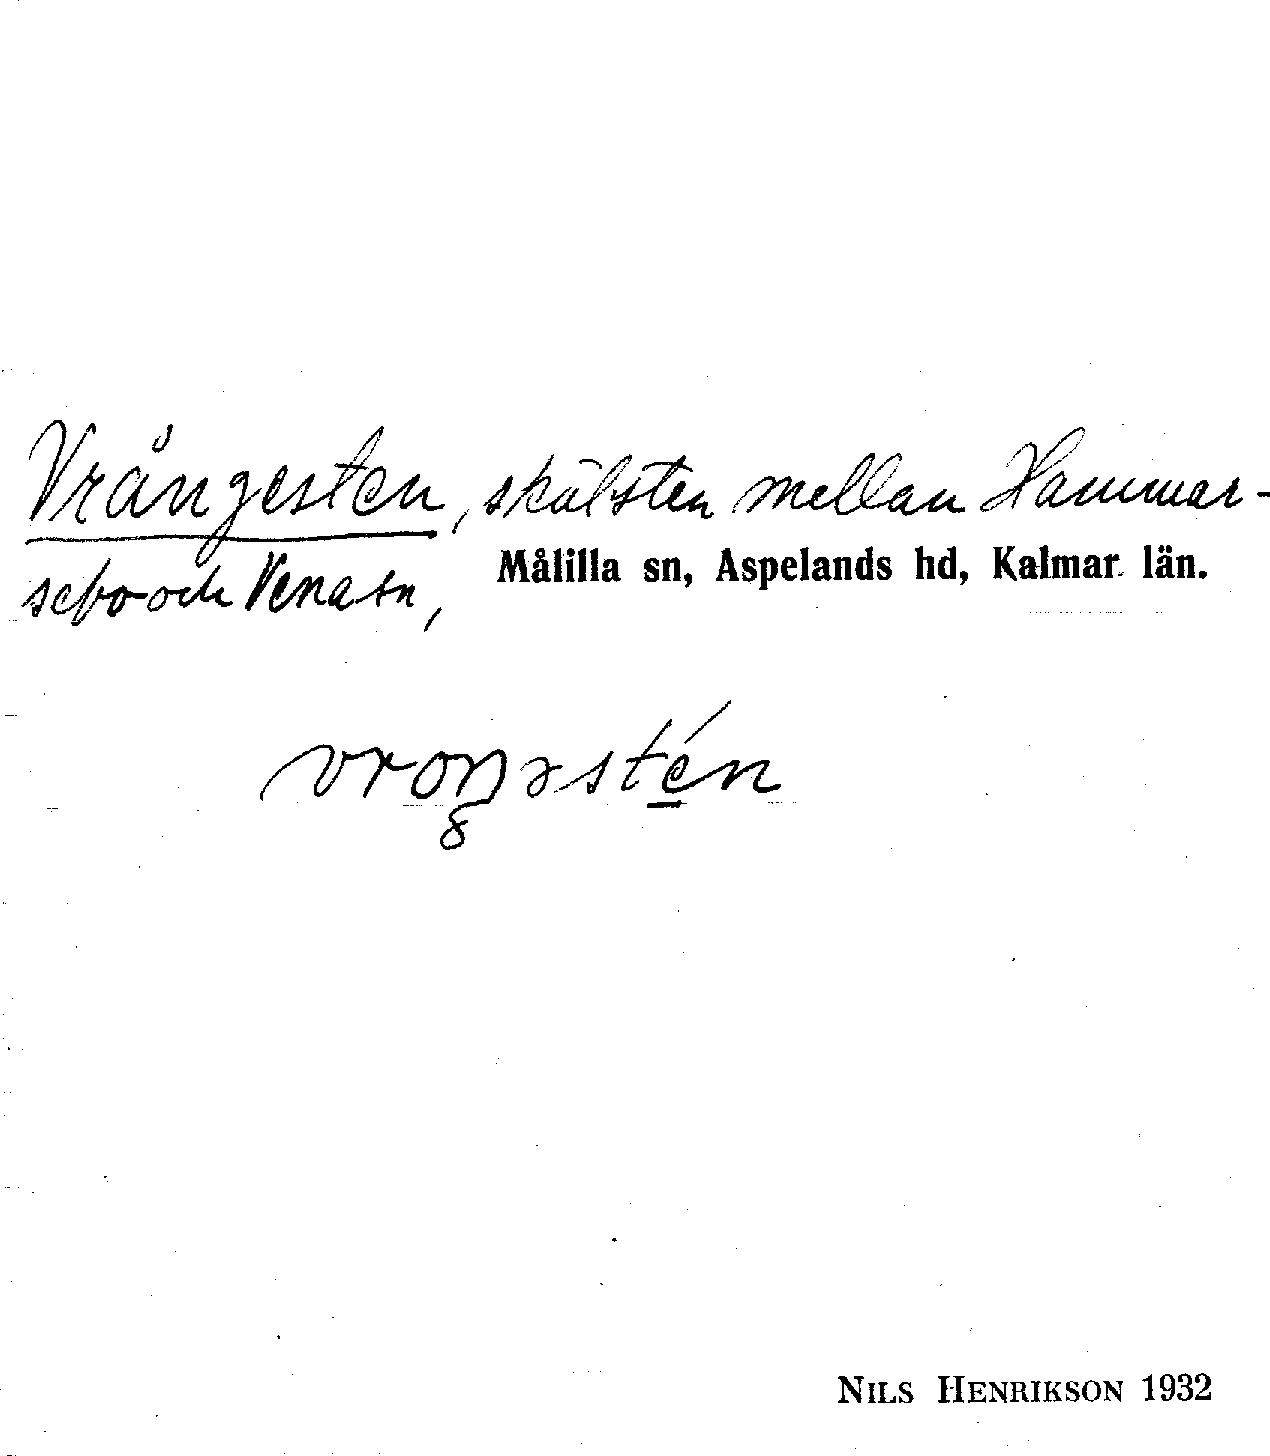 Vrångesten, skälsten mellan Hammar-
sebo och Vena sn, Målilla sn, Aspelands hd, Kalmar län.
vroŋəstén
NILS HENRIKSON 1932